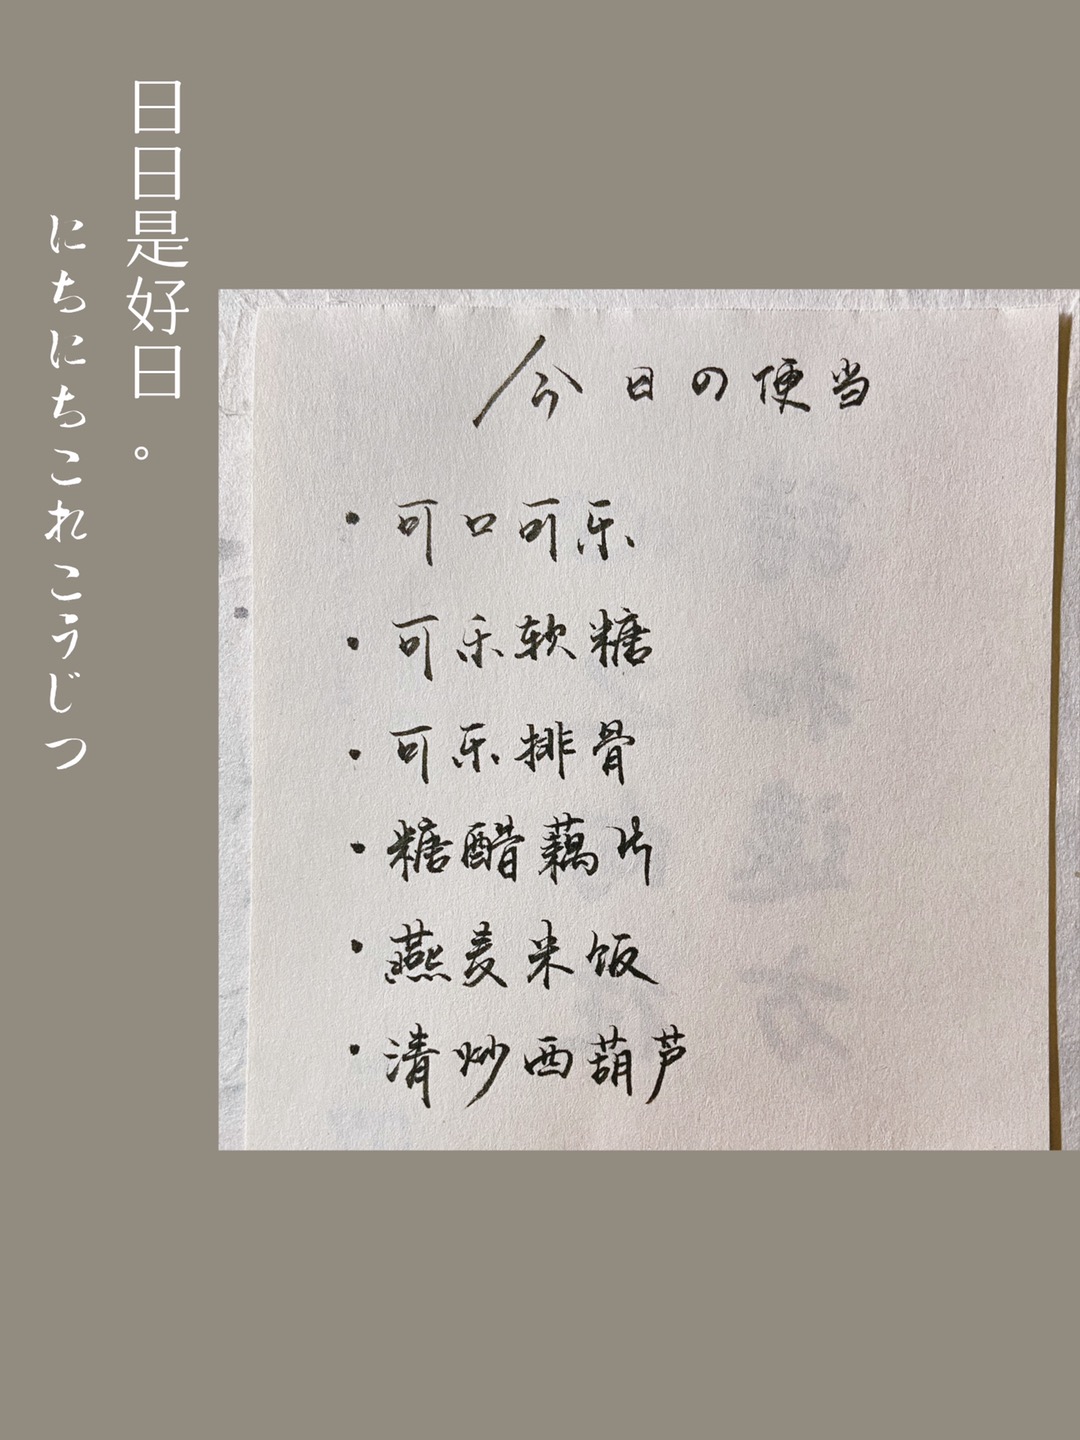 日日是好日。
にちにちこれこうじつ
今日の便当
·可口可乐
·可乐软糖
·可乐排骨
·糖醋藕片
·燕麦米饭
·清炒西葫芦